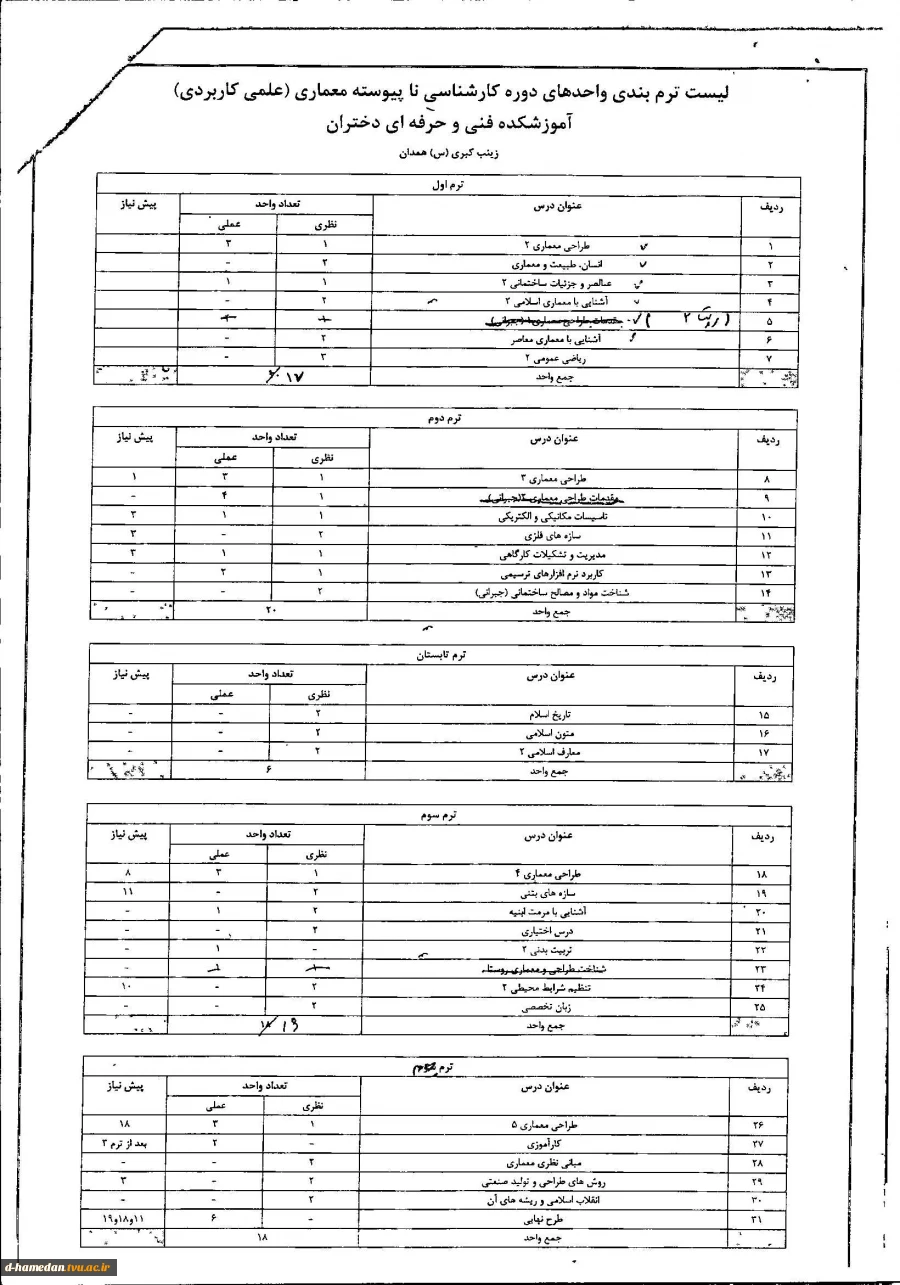 لیست ترم بندی واحدهای دوره کارشناسی نا پیوسته معماری (علمی کاربردی)
آموزشکده فنی و حرفه ای دختران
زینب کبری (س) همدان
ترم اول
ردیف عنوان درس تعداد واحد پیش نیاز
نظری عملی
۱ طراحی معماری ۲ ۱ ۳
۲ انسان، طبیعت و معماری ۲ -
۳ عناصر و جزئیات ساختمانی ۲ ۱ ۱
۴ آشنایی با معماری اسلامی ۲ ۲ -
۵ مقدمات طراحی معماری ۱ (جبرانی) ۱ ۴
۶ آشنایی با معماری معاصر ۲ -
۷ ریاضی عمومی ۲ ۳ -
جمع واحد ۱۷
ترم دوم
ردیف عنوان درس تعداد واحد پیش نیاز
نظری عملی
۸ طراحی معماری ۳ ۱ ۳ ۱
۹ مقدمات طراحی معماری ۲ (جبرانی) ۱ ۴ -
۱۰ تاسیسات مکانیکی و الکتریکی ۱ ۱ ۳
۱۱ سازه های فلزی ۲ - ۳
۱۲ مدیریت و تشکیلات کارگاهی ۱ ۱ ۳
۱۳ کاربرد نرم افزارهای ترسیمی ۱ ۲ -
۱۴ شناخت مواد و مصالح ساختمانی (جبرانی) ۲ - -
جمع واحد ۲۰
ترم تابستان
ردیف عنوان درس تعداد واحد پیش نیاز
نظری عملی
۱۵ تاریخ اسلام ۲ - -
۱۶ متون اسلامی ۲ - -
۱۷ معارف اسلامی ۲ ۲ - -
جمع واحد ۶
ترم سوم
ردیف عنوان درس تعداد واحد پیش نیاز
نظری عملی
۱۸ طراحی معماری ۴ ۱ ۳ ۸
۱۹ سازه های بتنی ۲ - ۱۱
۲۰ آشنایی با مرمت ابنیه ۲ ۱ -
۲۱ درس اختیاری ۲ - -
۲۲ تربیت بدنی ۲ - ۱ -
۲۳ شناخت طراحی و معماری روستا ۱ ۱ -
۲۴ تنظیم شرایط محیطی ۲ ۲ - ۱۰
۲۵ زبان تخصصی ۲ - -
جمع واحد ۱۸ ۱۶
ترم
ردیف عنوان درس تعداد واحد پیش نیاز
نظری عملی
۲۶ طراحی معماری ۵ ۱ ۳ ۱۸
۲۷ کارآموزی - ۲ بعد از ترم ۲
۲۸ مبانی نظری معماری ۲ - -
۲۹ روش های طراحی و تولید صنعتی ۲ - ۳
۳۰ انقلاب اسلامی و ریشه های آن ۲ - -
۳۱ طرح نهایی - ۶ ۱۱و۱۸و۱۹
جمع واحد ۱۸
d-hamedan.tvu.ac.ir